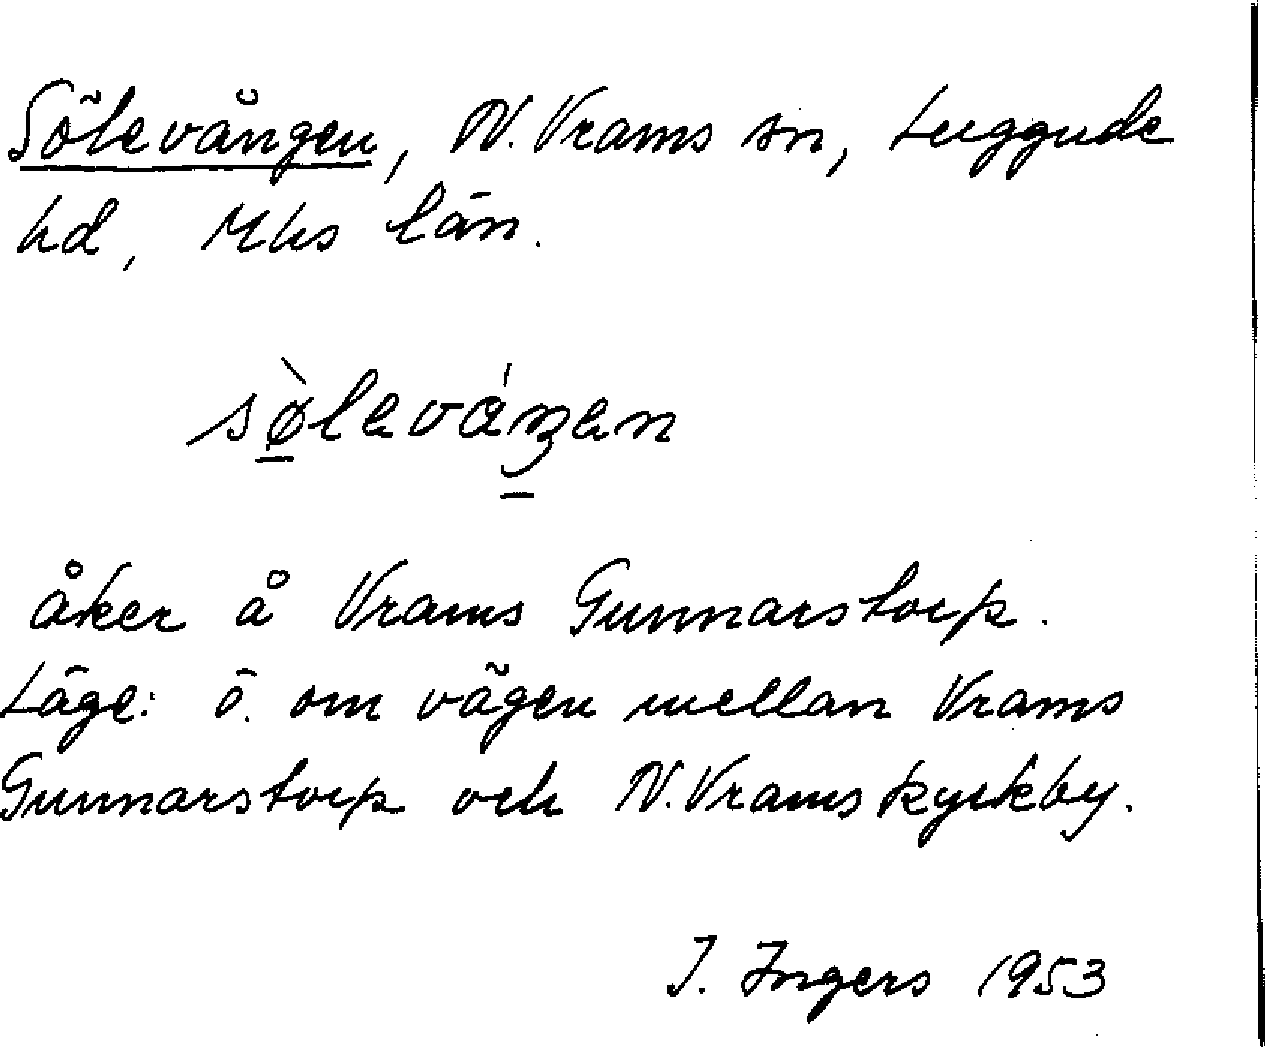 Sölevången, N. Vrams sn, Luggude
hd, Mhs län.
sø̀leváŋen
åker å Vrams Gunnarstorp.
Läge: ö. om vägen mellan Vrams
Gunnarstorp och N. Vrams kyrkby.
I. Ingers 1953